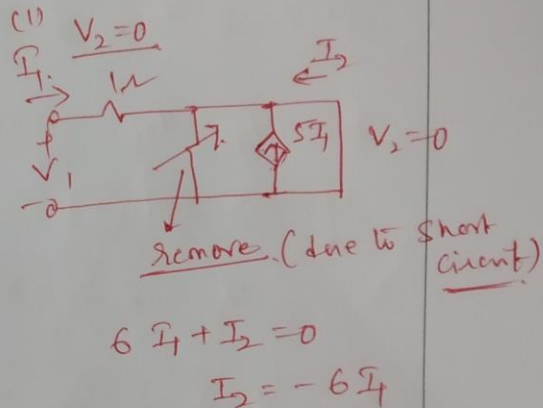 (1)
V₂=0
I₁
1Ω
I₂
+
V₁
-
5I₁
V₂=0
remove (due to short
circuit)
6 I₁ + I₂ = 0
I₂ = - 6 I₁